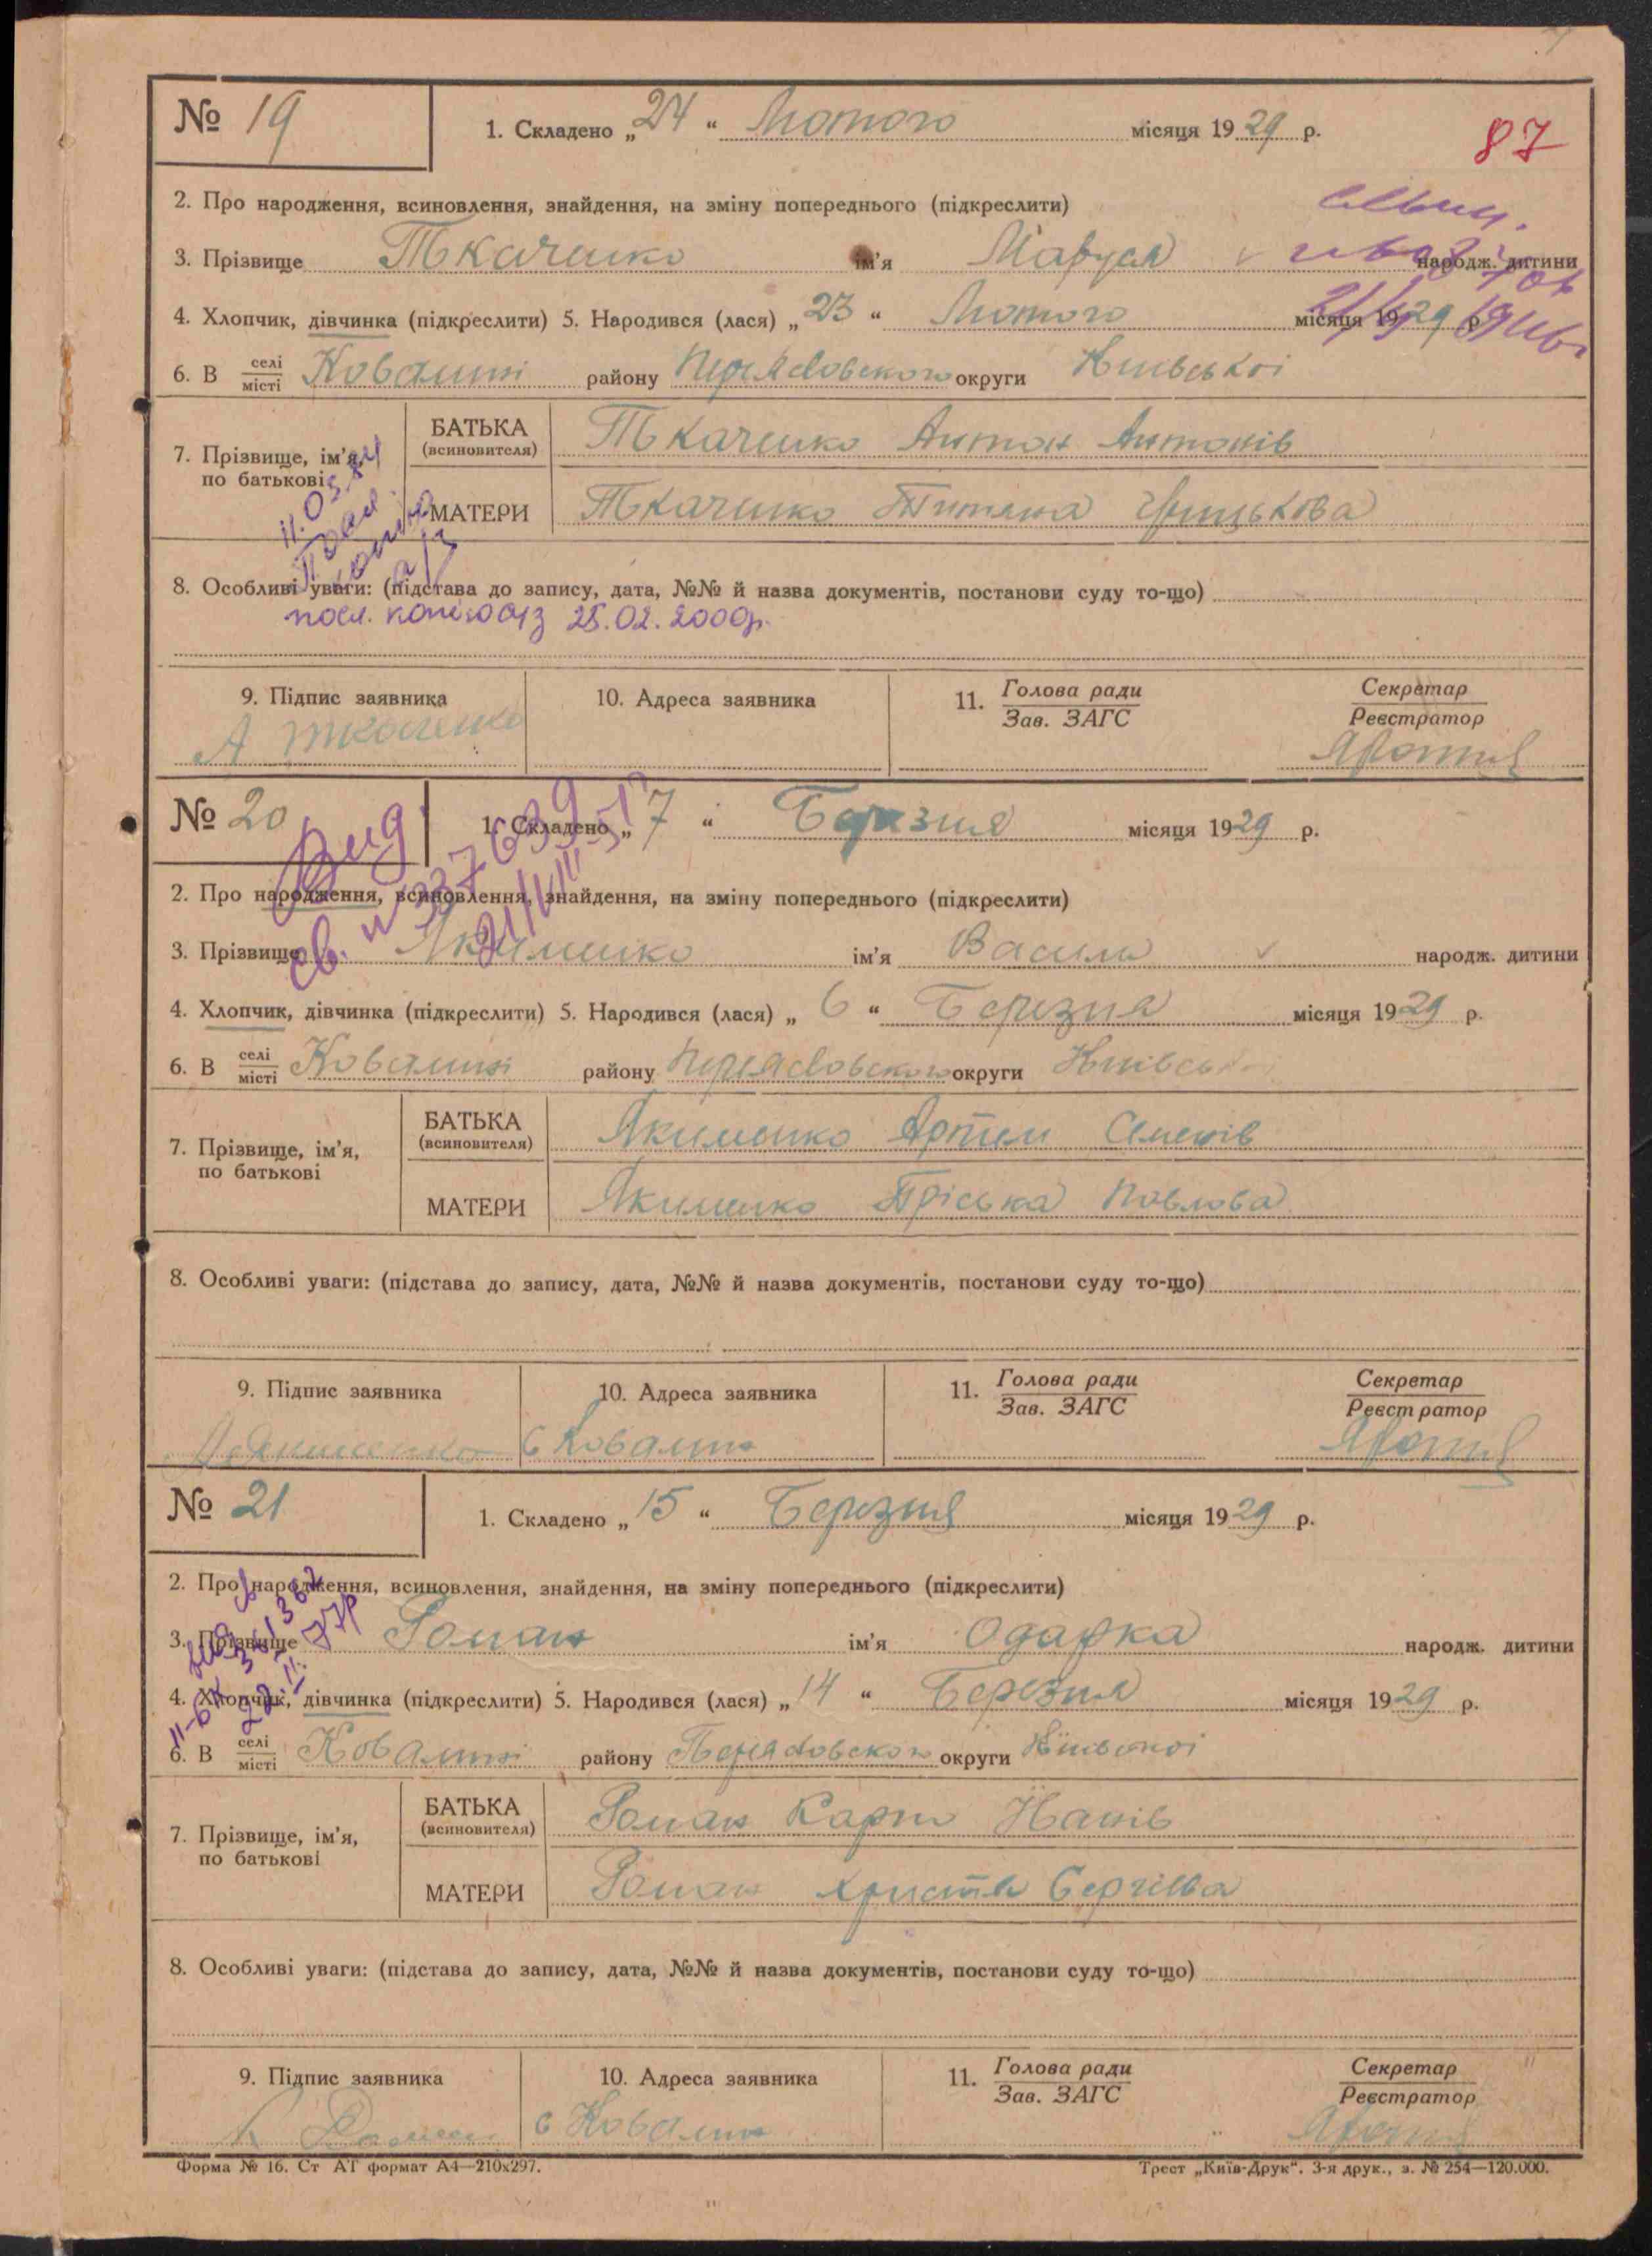 № 19
1. Складено „24“ Лютого місяця 1929 р.
87
2. Про народження, всиновлення, знайдення, на зміну попереднього (підкреслити)
3. Прізвище Ткаченко ім'я Маруся народж. дитини
4. Хлопчик, дівчинка (підкреслити) 5. Народився (лася) „23“ Лютого місяця 1929 р.
6. В селі/місті Ковалині району Переяславського округи Київської
7. Прізвище, ім'я, по батькові
БАТЬКА (всиновителя) Ткаченко Антон Антонів
МАТЕРИ Ткаченко Титяна Грицькова
11.03.84
8. Особливі уваги: (підстава до запису, дата, №№ й назва документів, постанови суду то-що)
посл. копію а/з 25.02.2000р.
9. Підпис заявника
10. Адреса заявника
11. Голова ради
Зав. ЗАГС
Секретар
Реєстратор
А Ткаченко
№ 20
1. Складено „7“ Березня місяця 1929 р.
Вид
св. №
2. Про народження, всиновлення, знайдення, на зміну попереднього (підкреслити)
3. Прізвище Якименко ім'я Василь народж. дитини
4. Хлопчик, дівчинка (підкреслити) 5. Народився (лася) „6“ Березня місяця 1929 р.
6. В селі/місті Ковалині району Переяславського округи Київськ
7. Прізвище, ім'я, по батькові
БАТЬКА (всиновителя) Якименко Артем Семенів
МАТЕРИ Якименко Пріська Павлова
8. Особливі уваги: (підстава до запису, дата, №№ й назва документів, постанови суду то-що)
9. Підпис заявника
10. Адреса заявника
11. Голова ради
Зав. ЗАГС
Секретар
Реєстратор
Якименко с Ковалин
№ 21
1. Складено „15“ Березня місяця 1929 р.
2. Про народження, всиновлення, знайдення, на зміну попереднього (підкреслити)
3. Прізвище Роман ім'я Одарка народж. дитини
4. Хлопчик, дівчинка (підкреслити) 5. Народився (лася) „14“ Березня місяця 1929 р.
6. В селі/місті Ковалині району Переяславського округи Київської
7. Прізвище, ім'я, по батькові
БАТЬКА (всиновителя) Роман Карпо
МАТЕРИ Роман Христя Сергієва
8. Особливі уваги: (підстава до запису, дата, №№ й назва документів, постанови суду то-що)
9. Підпис заявника
10. Адреса заявника
11. Голова ради
Зав. ЗАГС
Секретар
Реєстратор
с Ковалин
Форма № 16. Ст АТ формат А4—210х297.
Трест „Київ-Друк“. 3-я друк., з. № 254—120.000.